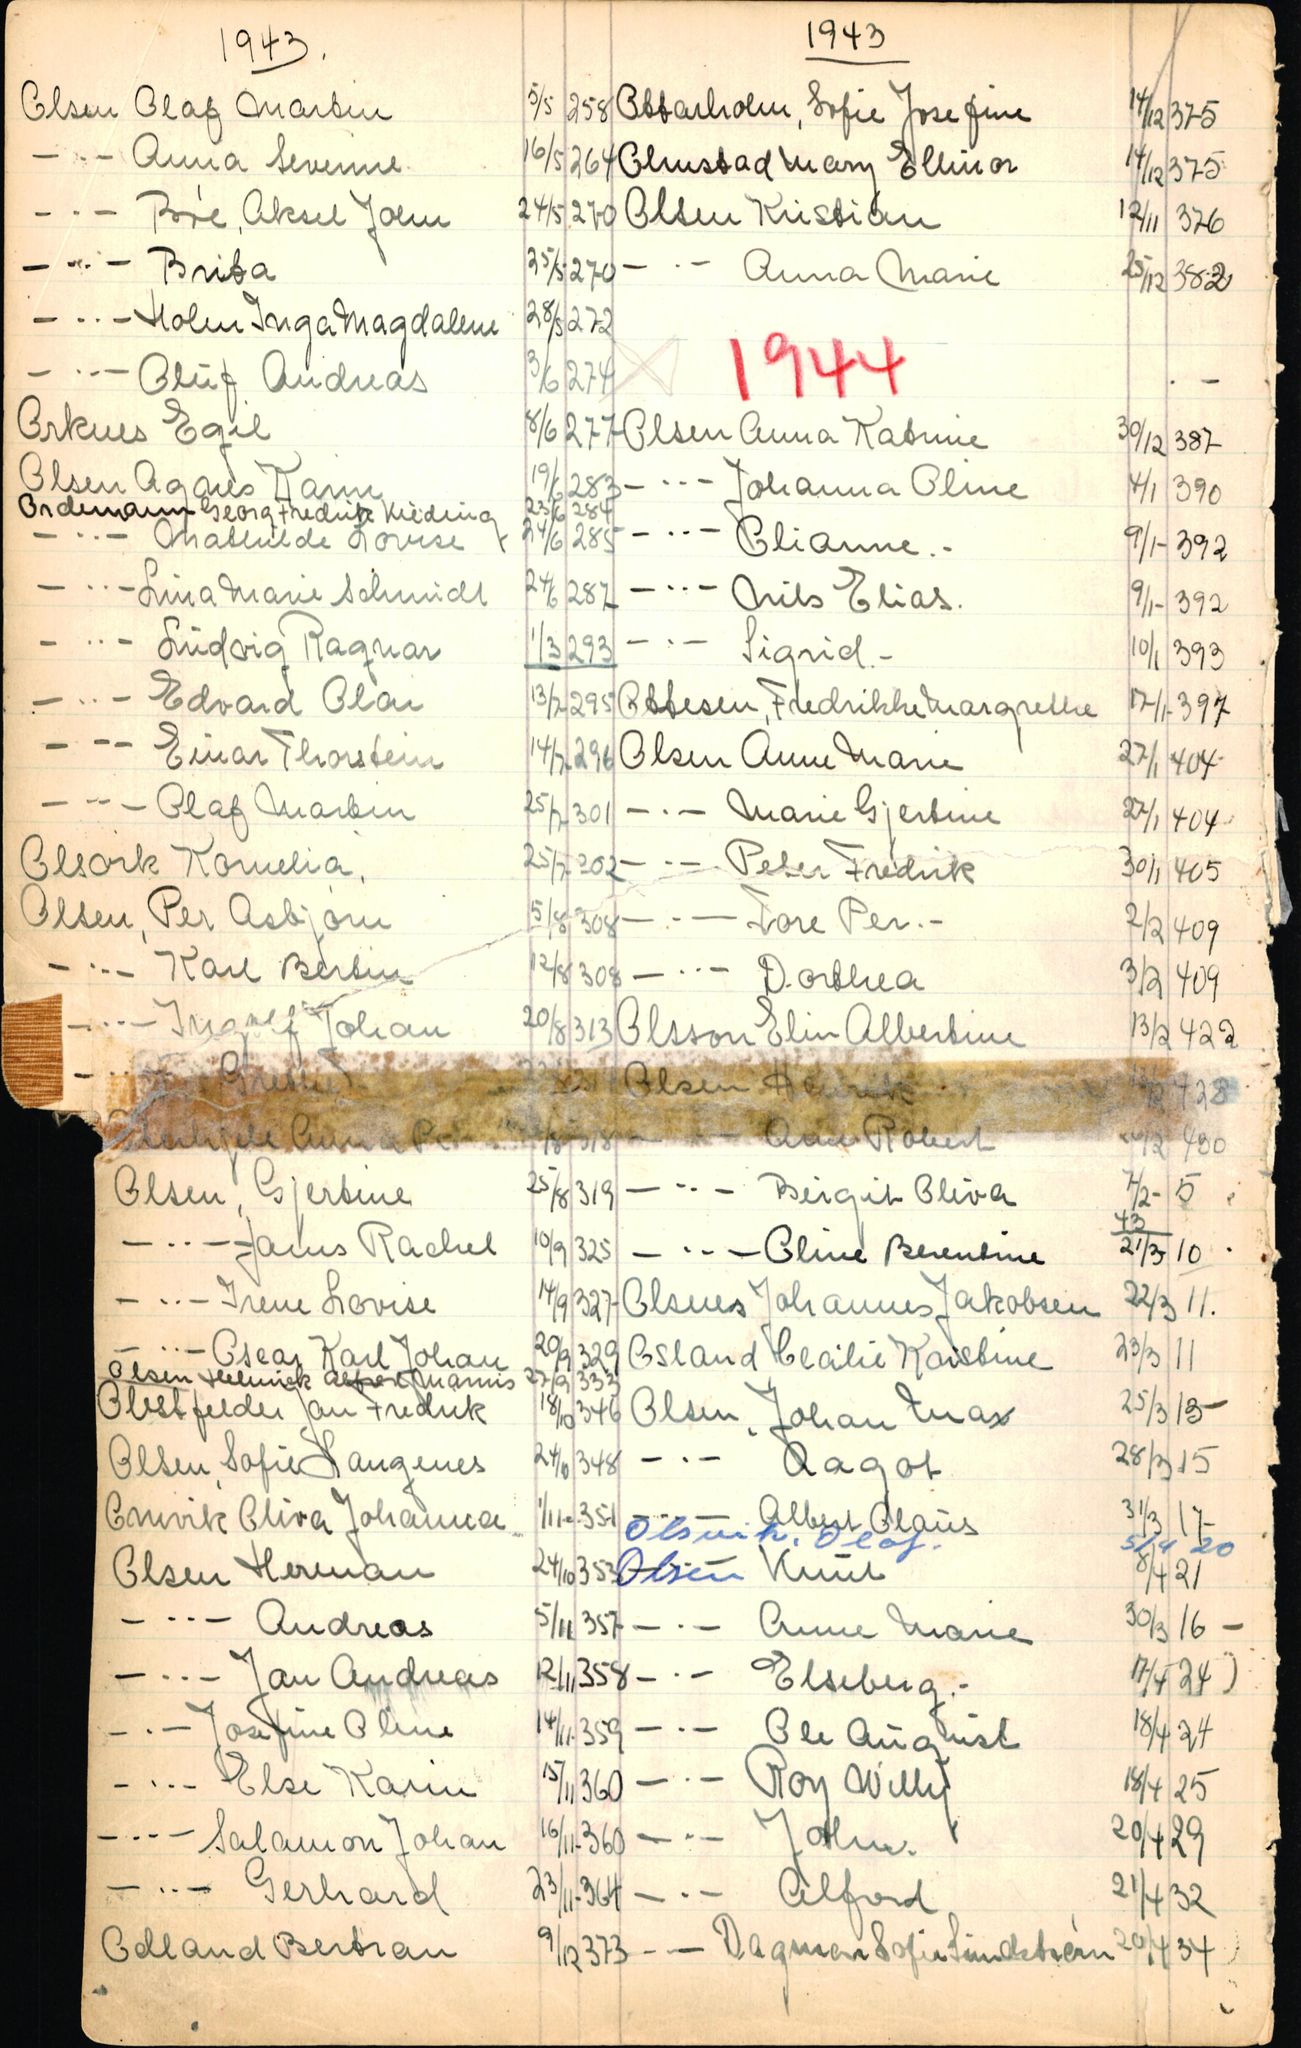 1943.
Olsen Olaf Martin 5/5 258
- " - Anna Severine 16/5 264
- " - Bore, Aksel John 24/5 270
- " - Brita 25/5 270
- " - Holm Inga Magdalene 28/5 272
- " - Oluf Andreas 3/6 274
Orknes Egil 8/6 277
Olsen Agnes Karin 19/6 283
Ordemann Georg Fredrik Kieding 23/6 284
- " - Mathilde Lovise 24/6 285
- " - Lina Marie Schmidt 24/6 287
- " - Ludvig Ragnar 1/3 293
- " - Edvard Olai 13/7 295
- " - Einar Thorstein 14/7 296
- " - Olaf Martin 25/7 301
Olsvik Kornelia, 25/7 302
Olsen, Per Asbjørn 5/8 308
- " - Karl Bertin 12/8 308
- " - Ingolf Johan 20/8 313
- " -
Anna 318
Olsen, Gjertine 25/8 319
- " - Janus Rachel 10/9 325
- " - Irene Lovise 14/9 327
- " - Oscar Karl Johan 20/9 329
Olsen Helmick Alfert Marius 27/9 333
Obstfelder Jan Fredrik 18/10 346
Olsen, Sofie Haugenes 24/10 348
Omvik Oliva Johanna 1/11 351
Olsen Herman 24/10 353
- " - Andreas 5/11 357
- " - Jan Andreas 12/11 358
- " - Josefine Oline 14/11 359
- " - Else Karin 15/11 360
- " - Salamon Johan 16/11 360
- " - Gerhard 23/11 364
Odland Bertran 9/12 373
1943
Ottarholm, Sofie Josefine 14/12 375
Olmstad Mary Ellinor 14/12 375
Olsen Kristian 12/11 376
- " - Anna Marie 25/12 382
1944
Olsen Anna Katrine 30/12 387
- " - Johanna Oline 4/1 390
- " - Olianne.- 9/1 392
- " - Nils Elias. 9/1 392
- " - Sigrid.- 10/1 393
Ottesen, Fredrikke Margrethe 17/1 397
Olsen Anne Marie 27/1 404
- " - Marie Gjertine 27/1 404
- " - Peter Fredrik 30/1 405
- " - Tore Per.- 2/2 409
- " - Dorthea 3/2 409
Olsson Elin Albertine 13/2 422
Olsen Henrik 428
- " - Robert 430
- " - Birgit Oliva 7/2- 5
43
- " - Oline Berentine 21/3 10
Olsnes Johannes Jakobsen 22/3 11.
Osland Cecilie Kristine 23/3 11
Olsen, Johan Max 25/3 13
- " - Aagot 28/3 15
- " - Albert Claus 31/3 17
Olsvik, Olaf. 5/4 20
Olsen Knut 8/4 21
- " - Anne Marie 30/3 16 -
- " - Elseberg.- 17/4 24)
- " - Ole August 18/4 24
- " - Roy Willy 18/4 25
- " - John. 20/4 29
- " - Alfred 21/4 32
- " - Dagmar Sofie Lindstrøm 20/4 34